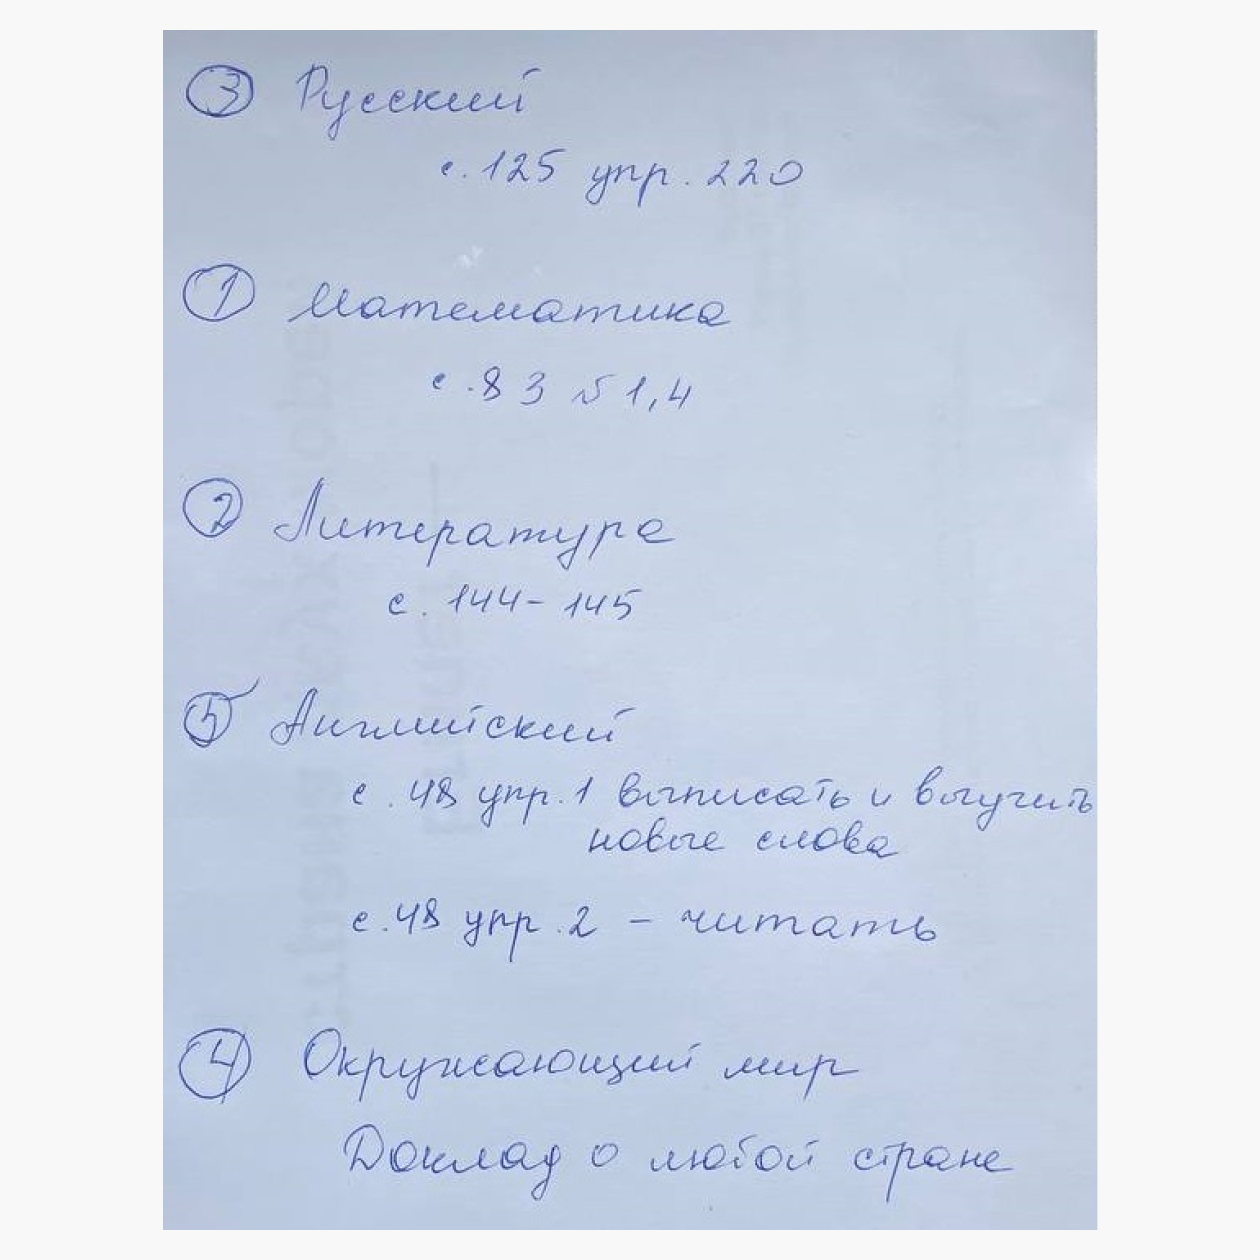 3 Русский
с. 125 упр. 220
1 Математика
с. 83 № 1,4
2 Литература
с. 144-145
5 Английский
с. 48 упр. 1 выписать и выучить
новые слова
с. 48 упр. 2 - читать
4 Окружающий мир
Доклад о любой стране